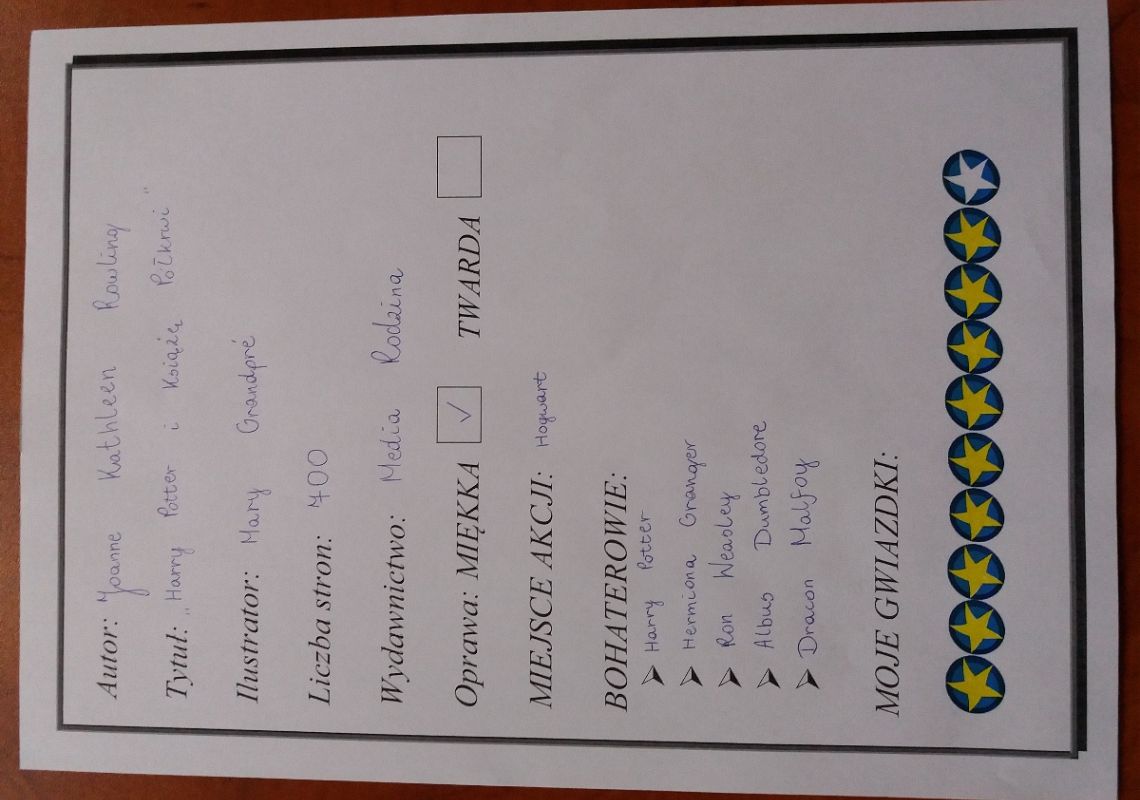 Autor: Joanne Kathleen Rowling
Tytuł: „Harry Potter i Książę Półkrwi"
Ilustrator: Mary Grandpré
Liczba stron: 700
Wydawnictwo: Media Rodzina
Oprawa: MIĘKKA ✓ TWARDA
MIEJSCE AKCJI: Hogwart
BOHATEROWIE:
➢ Harry Potter
➢ Hermiona Granger
➢ Ron Weasley
➢ Albus Dumbledore
➢ Dracon Malfoy
MOJE GWIAZDKI: